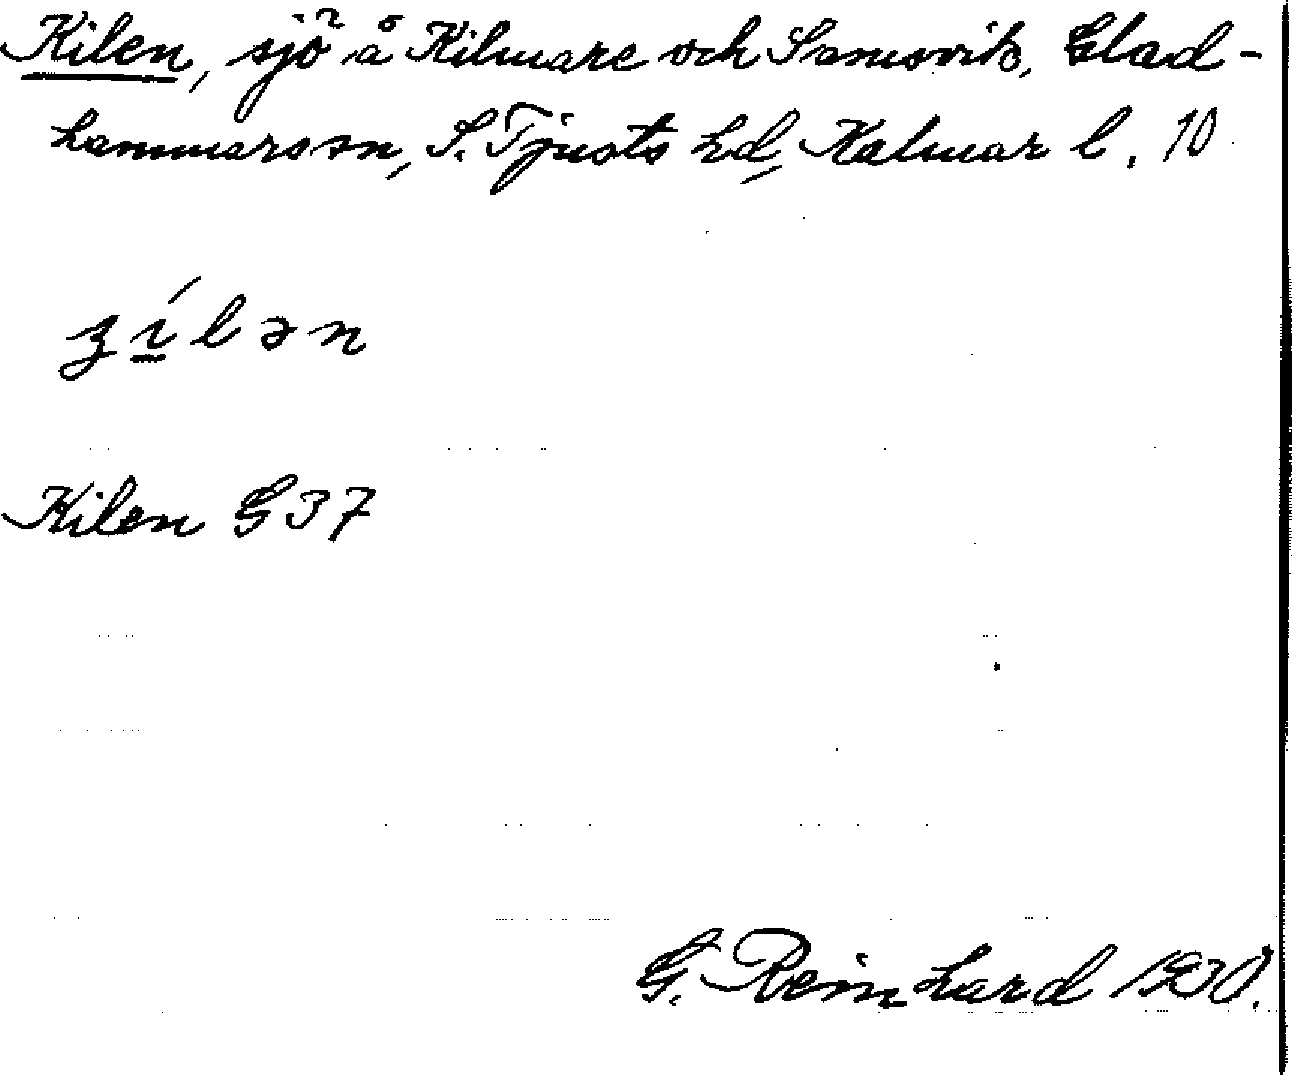 Kilen, sjö å Kilmare och Samsvik, Glad-
hammars sn, S. Tjusts hd, Kalmar l. 10
ʒílən
Kilen G 37
G. Reinhard 1930.